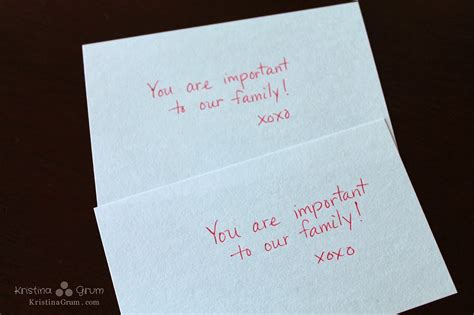 You are important
to our family!
xoxo
You are important
to our family!
xoxo
Kristina Grum
KristinaGrum.com